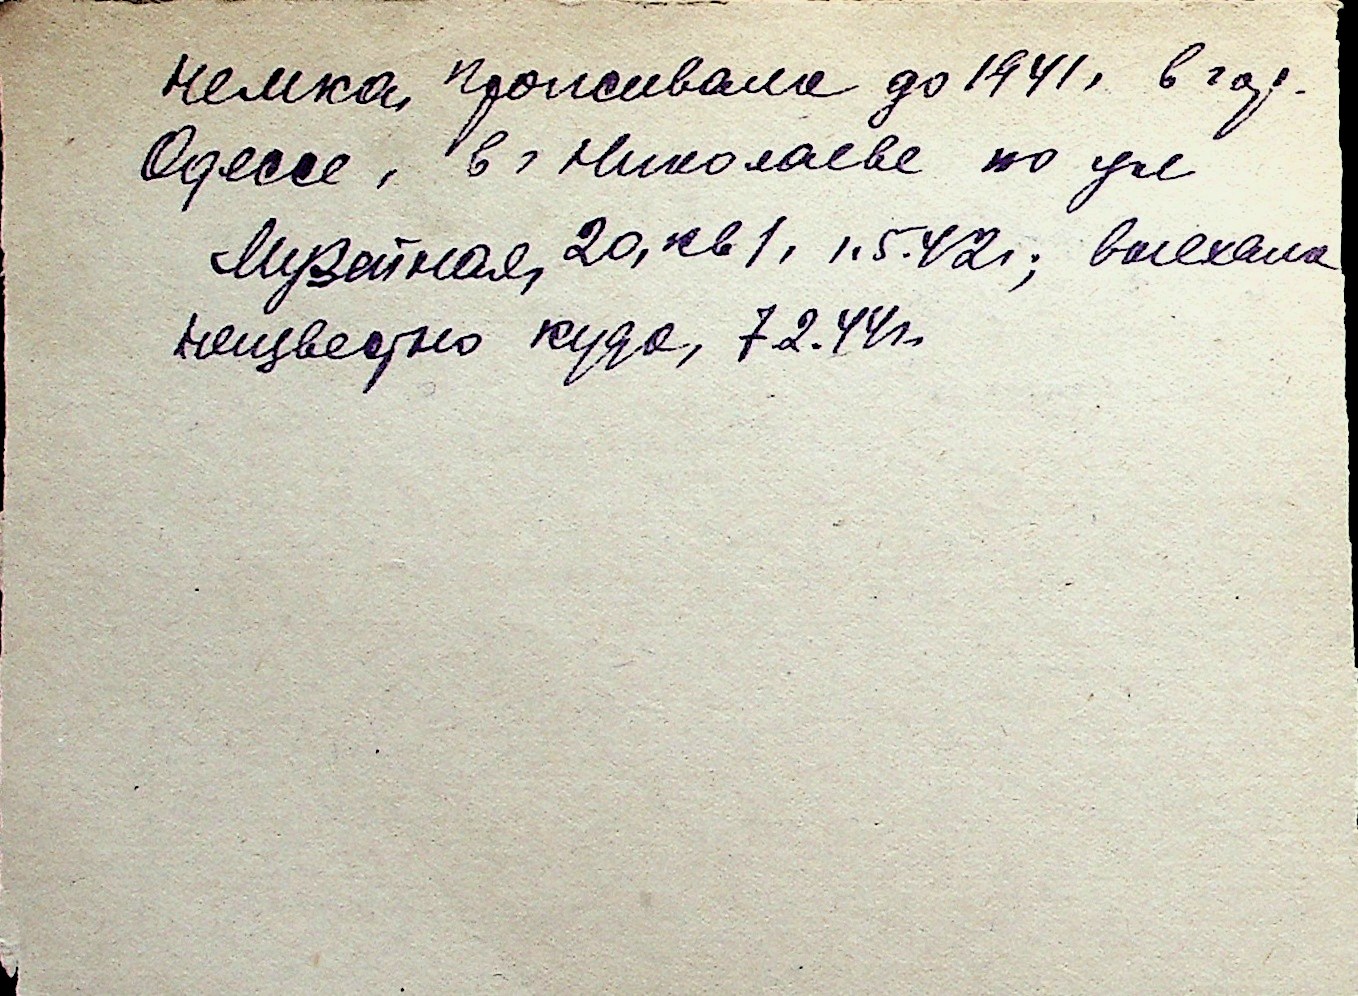 немка, проживала до 1941, в гор.
Одессе, в г Николаеве по ул
Музейная, 20, кв 1, 1.5.42г.; выехала
неизвестно куда, 7.2.44г.